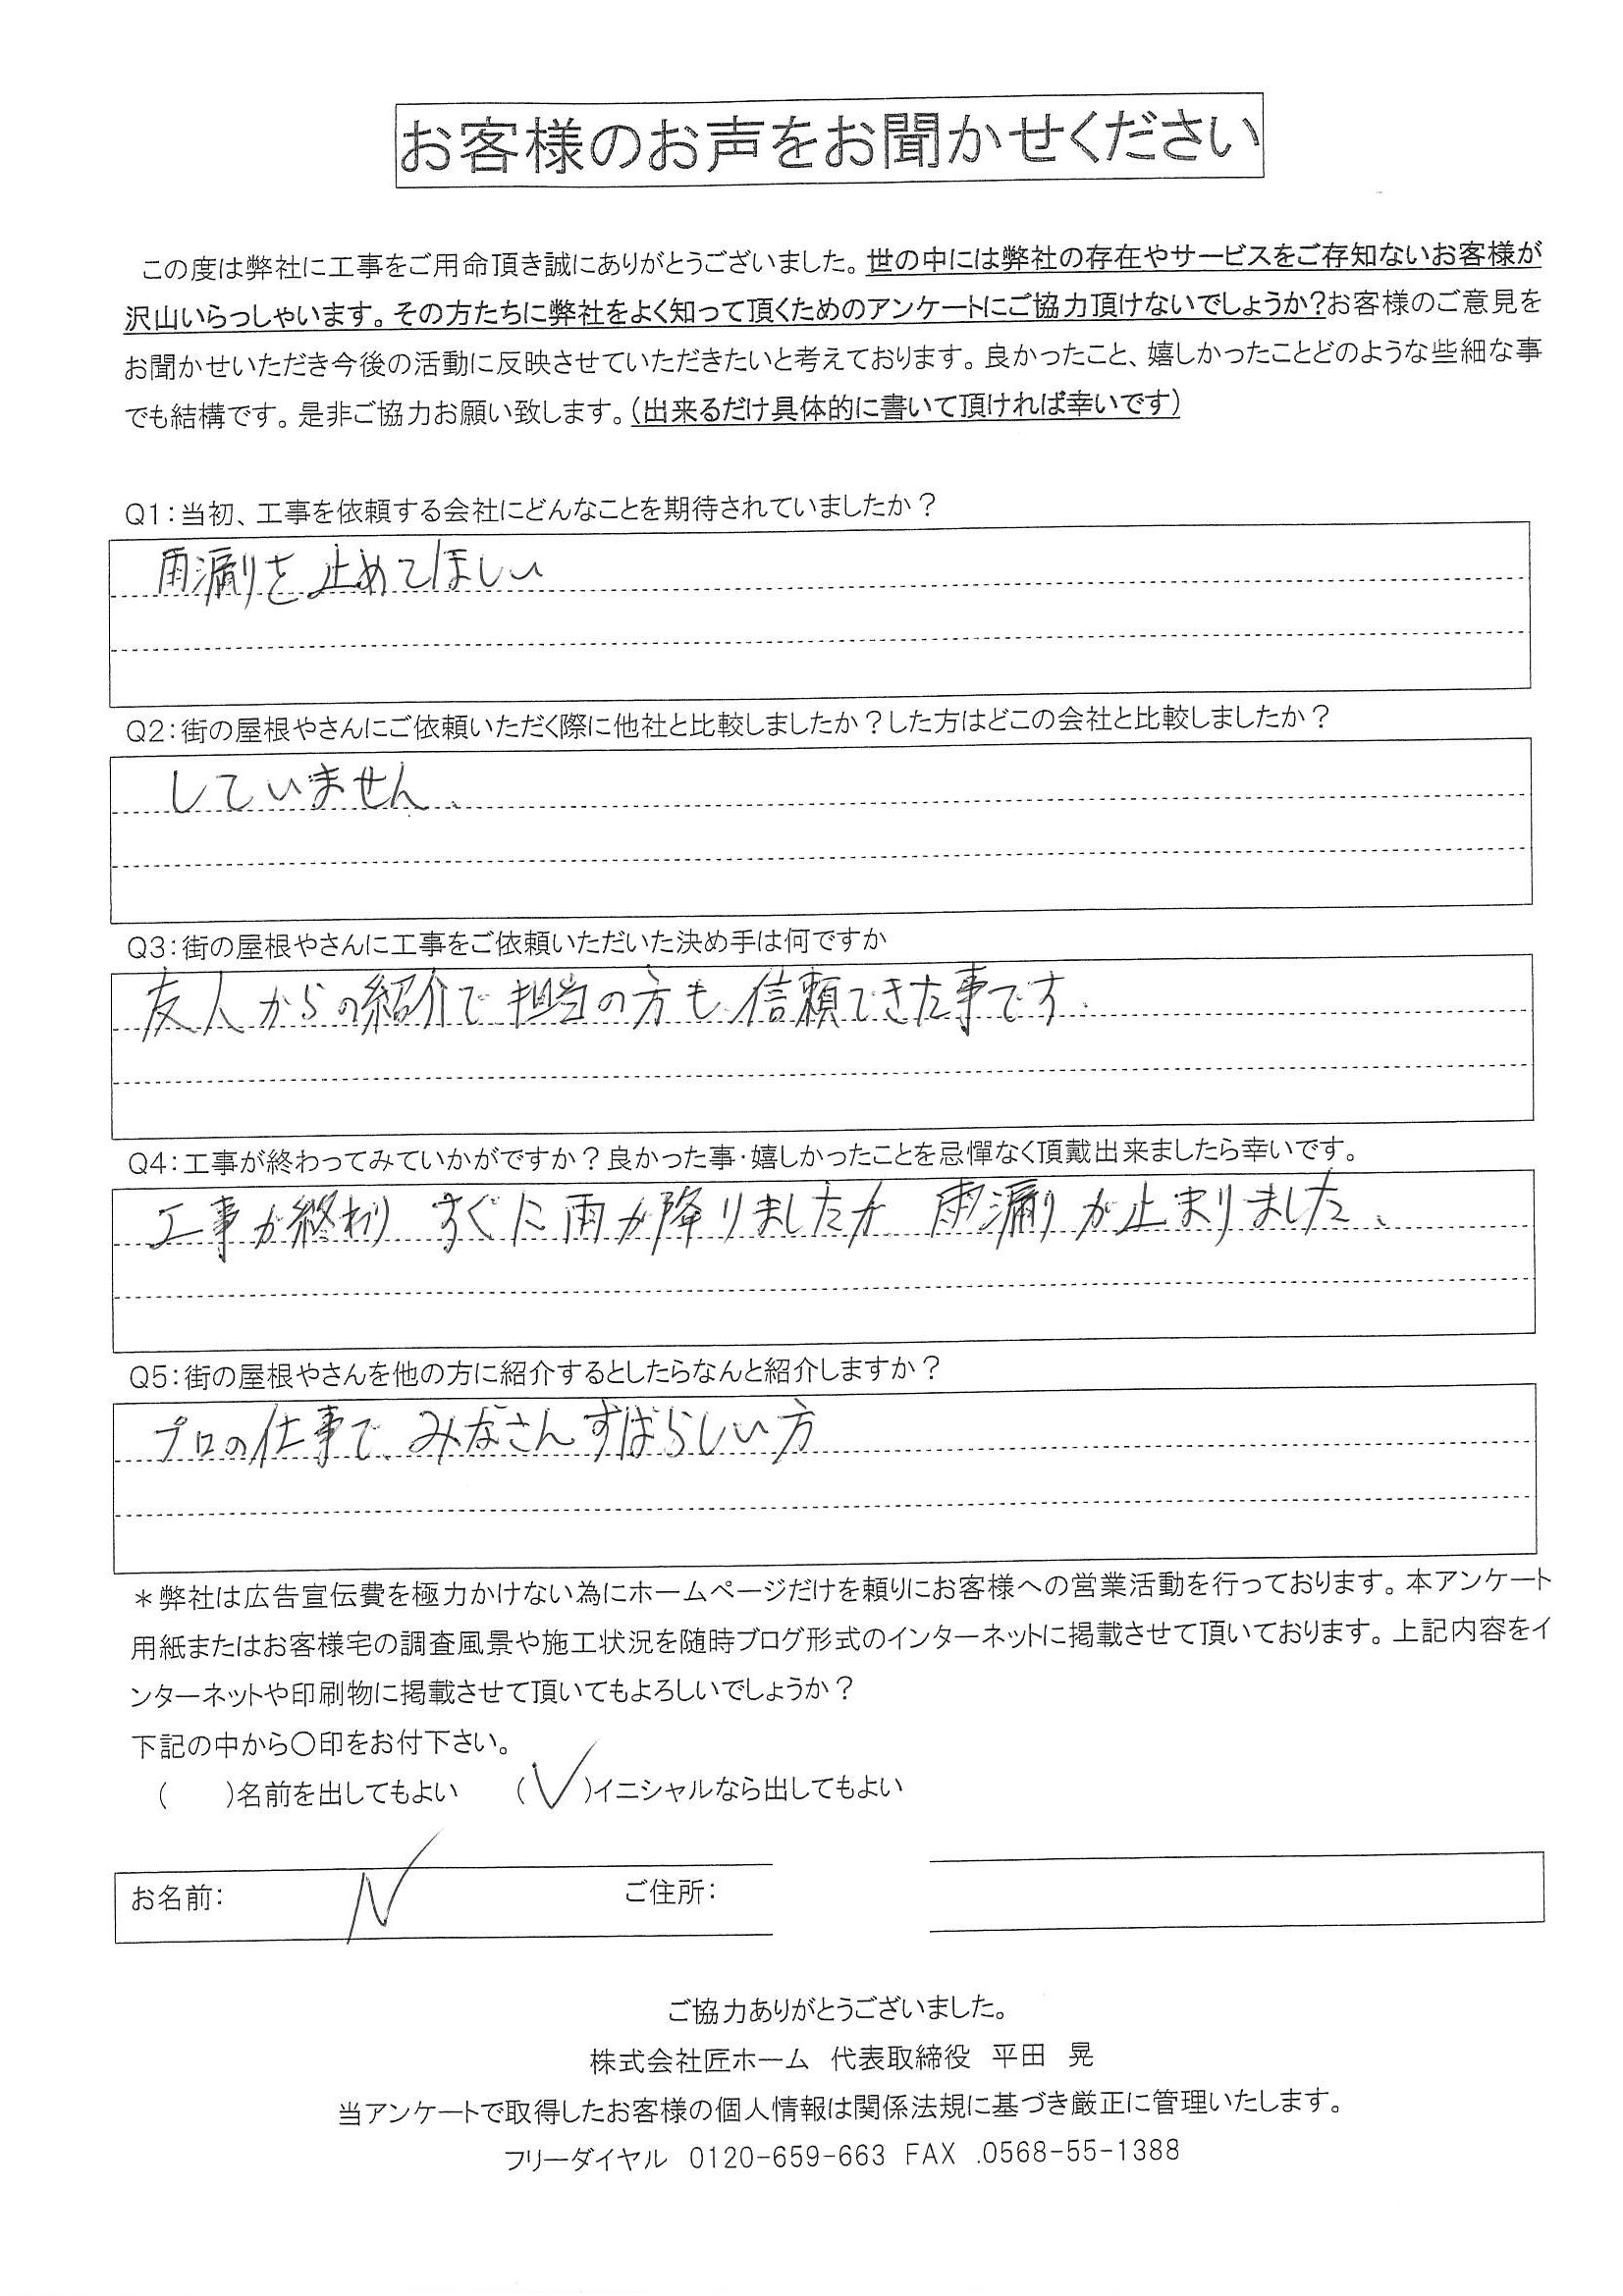 お客様のお声をお聞かせください
この度は弊社に工事をご用命頂き誠にありがとうございました。世の中には弊社の存在やサービスをご存知ないお客様が
沢山いらっしゃいます。その方たちに弊社をよく知って頂くためのアンケートにご協力頂けないでしょうか?お客様のご意見を
お聞かせいただき今後の活動に反映させていただきたいと考えております。良かったこと、嬉しかったことどのような些細な事
でも結構です。是非ご協力お願い致します。(出来るだけ具体的に書いて頂ければ幸いです)
Q1:当初、工事を依頼する会社にどんなことを期待されていましたか?
雨漏りを止めてほしい
Q2:街の屋根やさんにご依頼いただく際に他社と比較しましたか?した方はどこの会社と比較しましたか?
していません、
Q3:街の屋根やさんに工事をご依頼いただいた決め手は何ですか
友人からの紹介で担当の方も信頼できた事です、
Q4:工事が終わってみていかがですか?良かった事・嬉しかったことを忌憚なく頂戴出来ましたら幸いです。
工事が終わり すぐに雨が降りましたが 雨漏りが止まりました、
Q5:街の屋根やさんを他の方に紹介するとしたらなんと紹介しますか?
プロの仕事で、みなさんすばらしい方
*弊社は広告宣伝費を極力かけない為にホームページだけを頼りにお客様への営業活動を行っております。本アンケート
用紙またはお客様宅の調査風景や施工状況を随時ブログ形式のインターネットに掲載させて頂いております。上記内容をイ
ンターネットや印刷物に掲載させて頂いてもよろしいでしょうか?
下記の中から〇印をお付下さい。
( )名前を出してもよい (✓)イニシャルなら出してもよい
お名前: N ご住所:
ご協力ありがとうございました。
株式会社匠ホーム 代表取締役 平田 晃
当アンケートで取得したお客様の個人情報は関係法規に基づき厳正に管理いたします。
フリーダイヤル 0120-659-663 FAX .0568-55-1388